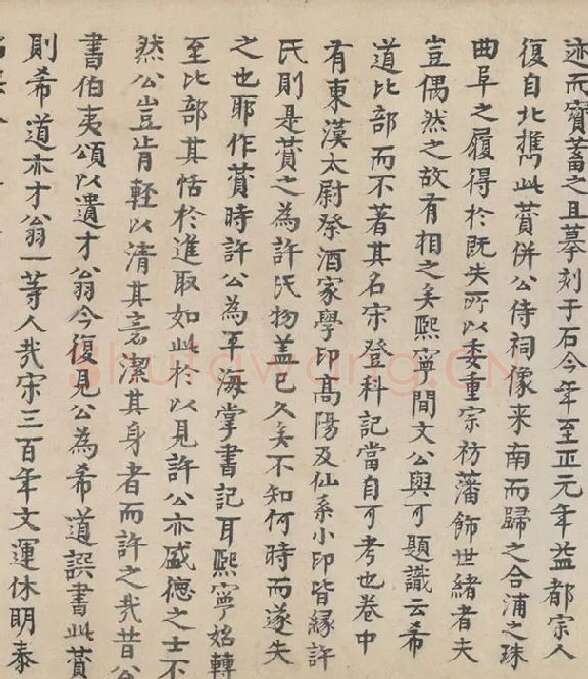 迹而寶蓄之且摹刻于石今年至正元年益都宗人
復自北携此賛併公侍祠像来南而歸之合浦之珠
曲阜之履得於既失所以委重宗祊藩飾世緒者夫
豈偶然之故有相之矣熙寧間文公與可題識云希
道比部而不著其名宋登科記當自可考也卷中
有東漢太尉祭酒家學印高陽及仙系小印皆緣許
氏則是賛之為許氏物盖已久矣不知何時而遂失
之也耶作賛時許公為平海掌書記耳熙寧始轉
至比部其恬於進取如此於以見許公亦盛德之士不
然公豈肯輕以清其言潔其身者而許之㢤昔公
書伯夷頌以遺才翁今復見公為希道譔書此賛
則希道亦才翁一等人㢤宋三百年文運休明泰
shufawang.CN